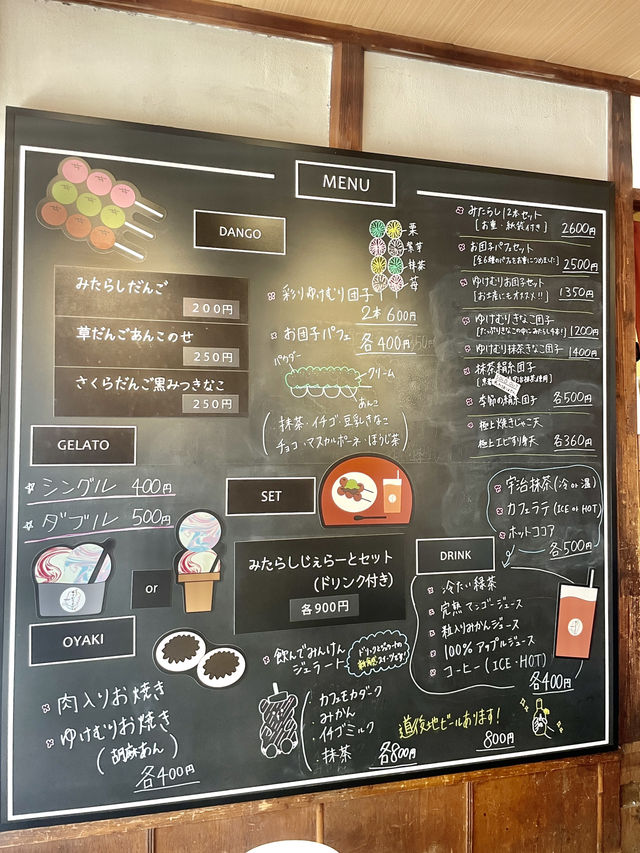 MENU
DANGO
みたらしだんご
200円
草だんごあんこのせ
250円
さくらだんご黒みつきなこ
250円
栗
紫芋
抹茶
苺
彩りゆけむり団子
2本 600円
お団子パフェ 各400円
パウダー
クリーム
あんこ
抹茶・イチゴ・豆乳きなこ
チョコ・マスカルポーネ・ほうじ茶
みたらし12本セット
[お重・紙袋付き] 2600円
お団子パフェセット
[全6種のパフェをお重につめました] 2500円
ゆけむりお団子セット
[お土産にもオススメ!!] 1350円
ゆけむりきなこ団子
[たっぷりきなこの中にみたらし4本り] 1200円
ゆけむり抹茶きなこ団子 1400円
抹茶絹糸団子
抹茶使用]
季節の絹糸団子 各500円
極上焼きじゃこ天
極上エビすり身天 各360円
GELATO
シングル 400円
ダブル 500円
or
SET
みたらしじぇらーとセット
(ドリンク付き)
各900円
宇治抹茶(冷or温)
カフェラテ(ICE or HOT)
ホットココア
各500円
DRINK
冷たい緑茶
完熟マンゴージュース
粒入りみかんジュース
100%アップルジュース
コーヒー(ICE・HOT)
各400円
OYAKI
肉入りお焼き
ゆけむりお焼き
(胡麻あん)
各400円
飲んでみんけん
ジェラート
ドリンクとジェラートの
新感覚スイーツです!
カフェモカダーク
みかん
イチゴミルク
抹茶
各800円
道後地ビールあります!
800円